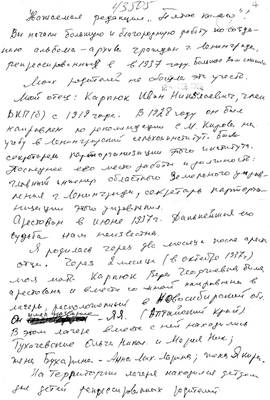 43505
Уважаемая редакция "Пятое колесо"!
Вы начали большую и благородную работу по созда-
нию альбома-архива граждан г. Ленинграда,
репрессированных в 1937 году. Большое Вам спасибо
Моих родителей не обошла эта участь.
Мой отец: Карпюк Иван Николаевич, член
ВКП(б) с 1918 года. В 1928 году он был
направлен по рекомендации С.М. Кирова на
учебу в Ленинградский сельхозинститут. Был
секретарем парторганизации этого института.
Последнее его место работы и должность:
главный инженер областного Земельного управ-
ления г. Ленинграда, секретарь парторга-
низации этого управления.
Арестован в июне 1937г. Дальнейшая его
судьба нам неизвестна.
Я родилась через два месяца после ареста
отца. Через 2 месяца (в октябре 1937г.)
моя мать Карпюк Вера Георгиевна была
арестована и вместе со мной направлена в
лагерь, расположенный в Новосибирской об.
(Алтайский край)
В этом лагере вместе с ней находились
Тухачевские Ольга Ник. и Мария Ник.;
жена Бухарина - Анна Мих. Ларина; жена Якира.
На территории лагеря находился детдом
для детей репрессированных родителей